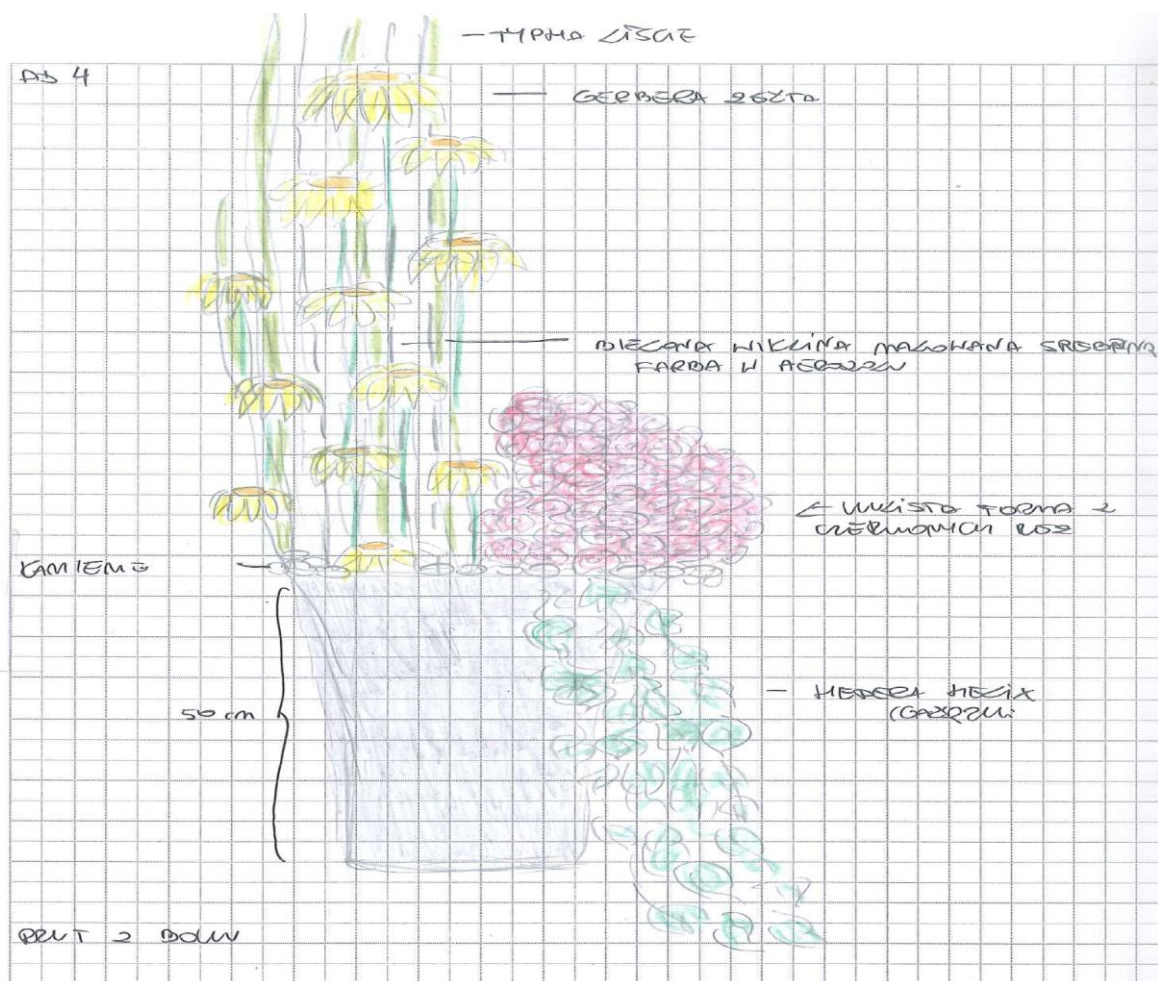 – TYPHA LIŚCIE
AD 4
GERBERA ŻÓŁTA
BIELONA WIKLINA MALOWANA SREBRNĄ
FARBĄ W AEROZOLU
← KULISTA FORMA Z
CZERWONYCH RÓŻ
KAMIENIE
– HEDERA HELIX
(GAŁĄZKI)
50 cm
RZUT Z BOKU